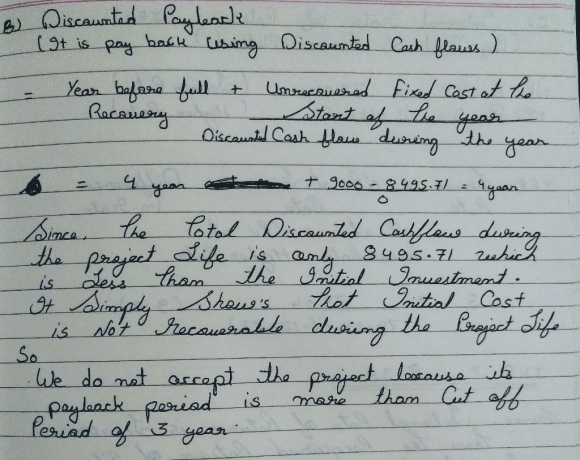 B) Discounted Payback
(It is pay back using Discounted Cash flows)
= Year before full + Unrecovered Fixed Cost at the
Recovery Start of the year
Discounted Cash flow during the year
= 4 year + 9000 - 8495.71 = 4 year
0
Since, the Total Discounted Cashflow during
the project Life is only 8495.71 which
is Less than the Initial Investment.
It Simply Show's that Initial Cost
is Not Recoverable during the Project Life
So
We do not accept the project because its
payback period is more than Cut off
Period of 3 year.